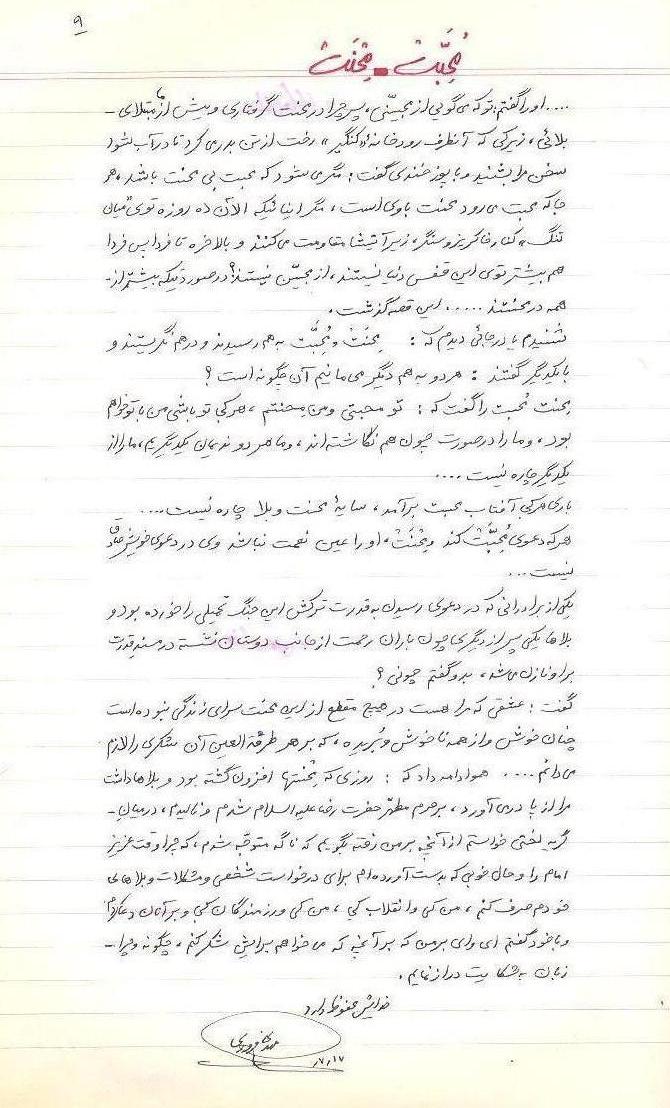 ۹
مُحِبَّت - مِحْنَت
.... او را گفتم: تو که می گوئی از محبّینی، پس چرا در محنت گرفتاری و بیش از ما مبتلای -
بلائی، زیرکی که آنطرف رودخانهٔ «کنگیر» رخت از تن بدر می کرد تا در آب شود
سخن مرا بشنید و با پوزخندی گفت: مگر می شود که محبت بی محنت باشد، هر
جا که محبت می رود محنت با وی است، مگر اینا نیکه الآن ده روزه توی میان
تنگ کنار خاکریز و سنگر، زیر آتیشا مقاومت می کنند و بالاخره تا فردا پس فردا
هم بیشتر توی این قفس دنیا نیستند، از محبّین نیستند؟! در صورتیکه بیشتر از -
همه در محنتند ..... این قصه گذشت.
شنیدم یا در جائی دیدم که: مِحنَت و مُحِبَّت به هم رسیدند و در هم نگریستند و
با یکدیگر گفتند: هر دو به هم دیگر می مانیم آن چگونه است؟
محنت مُحبت را گفت که: تو محبتی و من مِحنتم، هر کجا تو باشی من با تو خواهم
بود، و ما را در صورت چون هم نگاشته اند، و ما هر دو ندیمان یکدیگریم، ما را از
یکدیگر چاره نیست ....
باری هر کجا آفتاب محبت برآمد، سایهٔ محنت و بلا چاره نیست ....
هر که دعوی مُحِبَّت کند و مِحْنَتْ، او را عین نعمت نباشد وی در دعوی خویش صادق
نیست ...
یکی از برادرانی که در دعوی رسیدن به قدرت ترکش این جنگ تحمیلی را خورده بود و
بلاها یکی پس از دیگری چون باران رحمت از جانب دوستان نشسته در مسند قدرت
بر او نازل می شد، بدو گفتم چونی؟
گفت: عشقی که مرا هست در هیچ مقطع از این محنت سرای زندگی نبوده است
چنان خوش و از همه ناخوش و بُریده، که بر هر طرفة العین آن شکری را لازم
می دانم .... هو ادامه داد که: روزی که مِحْنتها افزون گشته بود و بلاها داشت
مرا از پا در می آورد، بر حرم مطهّر حضرت رضا علیه السلام شدم و نالیدم، در میان -
گریه لختی خواستم از آنچه بر من رفته بگویم که ناگه متوجّه شدم، که چرا وقت عزیز
امام را و حال خوبی که بدست آورده ام برای درخواست شخصی و مشکلات و بلاهای
خودم صرف کنم، من کی و انقلاب کی، من کی و رزمندگان کی و بر آنان دعا کردم
و با خود گفتم ای وای بر من که بر آنچه که می خواهم برایش شکر کنم، چگونه و چرا -
زبان به شکایت دراز نمایم.
خدایش محفوظ دارد
۷/۱۷